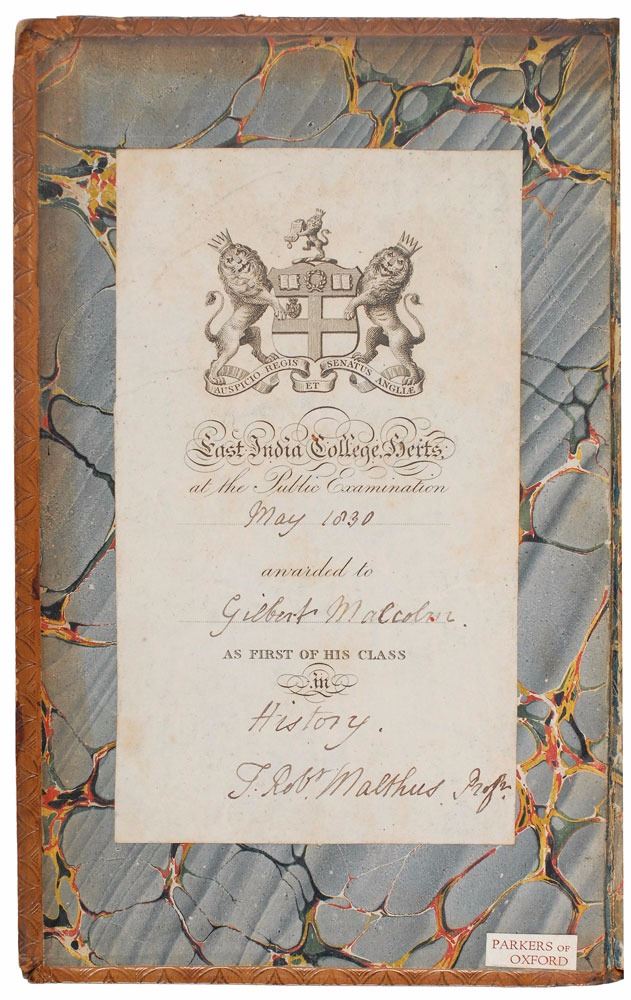 AUSPICIO REGIS ET SENATUS ANGLIÆ
East India College, Herts,
at the Public Examination
May 1830
awarded to
Gilbert Malcolm.
AS FIRST OF HIS CLASS
in
History.
T. Robt. Malthus. Profr.
PARKERS OF
OXFORD